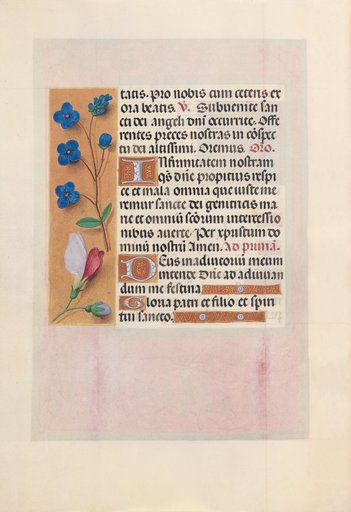 tatis. pro nobis cum ceteris ex
ora beatis. V. Subuenite san
cti dei angeli dñi occurrite. Offe
rentes preces nostras in cõspe
ctu dei altissimi. Oremus. Oro.
Infirmitatem nostram
qs dñe propitius respi
ce et mala omnia que iuste me
remur sancte dei genitricis ma
rie et omniũ scõrum intercessio
nibus auerte. Per xpistum do
minũ nostrũ Amen. Ad primã.
Deus in adiutoriũ meum
intende Dñe ad adiuuan
dum me festina
Gloria patri et filio et spiri
tui sancto.